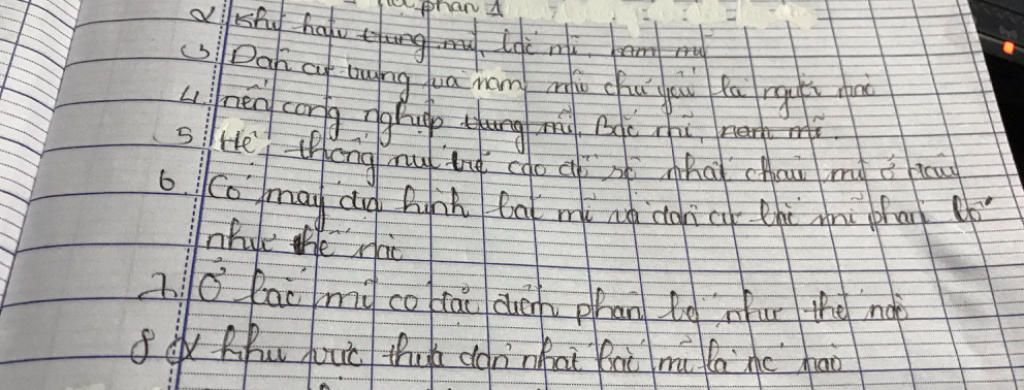 phần 1
2 Khí hậu trung mĩ, bắc mĩ, nam mĩ
3 Dân cư trung và nam mĩ chủ yếu là người nào
4 nền công nghiệp trung mĩ, Bắc mĩ, nam mĩ.
5 Hệ thống núi trẻ cao đồ sộ nhất châu mỹ ở đâu
6. Có mấy địa hình bắc mĩ và dân cư bắc mĩ phân bố
như thế nào
7. Ở bắc mĩ có đặc điểm phân bố như thế nào
8 khu vực thưa dân nhất bắc mĩ là nơi nào